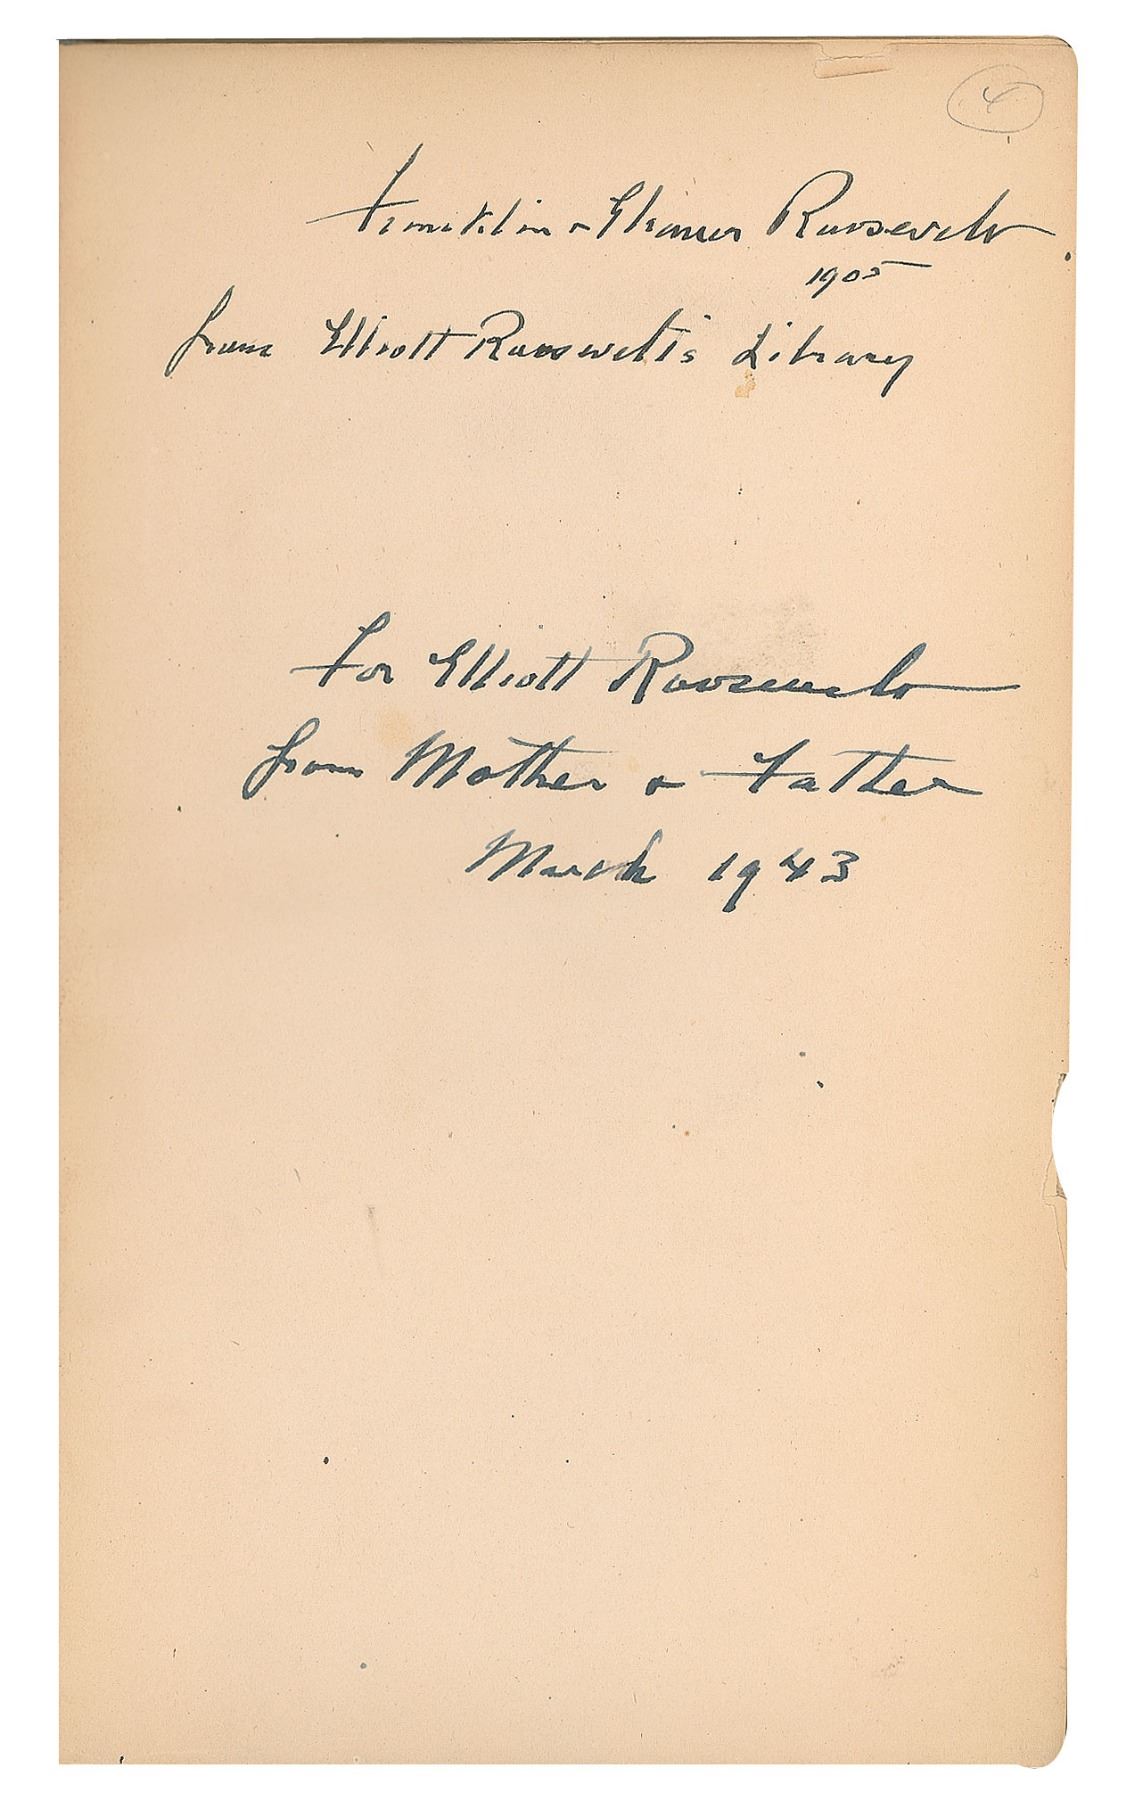 Franklin & Eleanor Roosevelt
1905
from Elliott Roosevelt's Library
For Elliott Roosevelt
from Mother & Father
March 1943